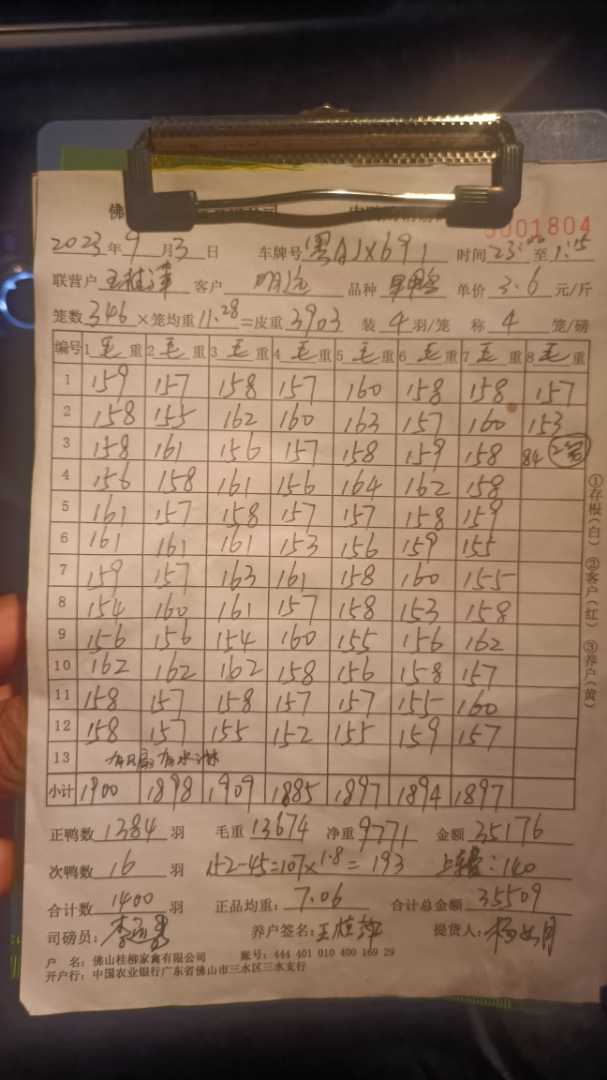 佛
0001804
2023年9月3日 车牌号 粤AJX691 时间23:00至1:15
联营户 客户 明远 品种 单价 3.6 元/斤
笼数346×笼均重11.28=皮重3903 装4羽/笼 称4笼/磅
编号 1毛重 2毛重 3毛重 4毛重 5毛重 6毛重 7毛重 8毛重
1 159 157 158 157 160 158 158 157
2 158 155 162 160 163 157 160 153
3 158 161 156 157 158 159 158 84 2笼
4 156 158 161 156 164 162 158
5 161 157 158 157 157 158 159
6 161 161 161 153 156 159 155
7 159 157 163 161 158 160 155
8 154 160 161 157 158 153 158
9 156 156 154 160 155 156 162
10 162 162 162 158 156 158 157
11 158 157 158 157 157 155 160
12 158 157 155 152 155 159 157
13
小计 1900 1898 1909 1885 1897 1894 1897
正鸭数1384羽 毛重13674 净重9771 金额35176
次鸭数16羽 152-45=107×1.8=193 上车费:140
合计数1400羽 正品均重:7.06 合计总金额35509
司磅员: 养户签名: 提货人:
户 名:佛山桂柳家禽有限公司 账号:444 401 010 400 169 29
开户行:中国农业银行广东省佛山市三水区三水支行
①存根(白) ②客户(红) ③养户(黄)